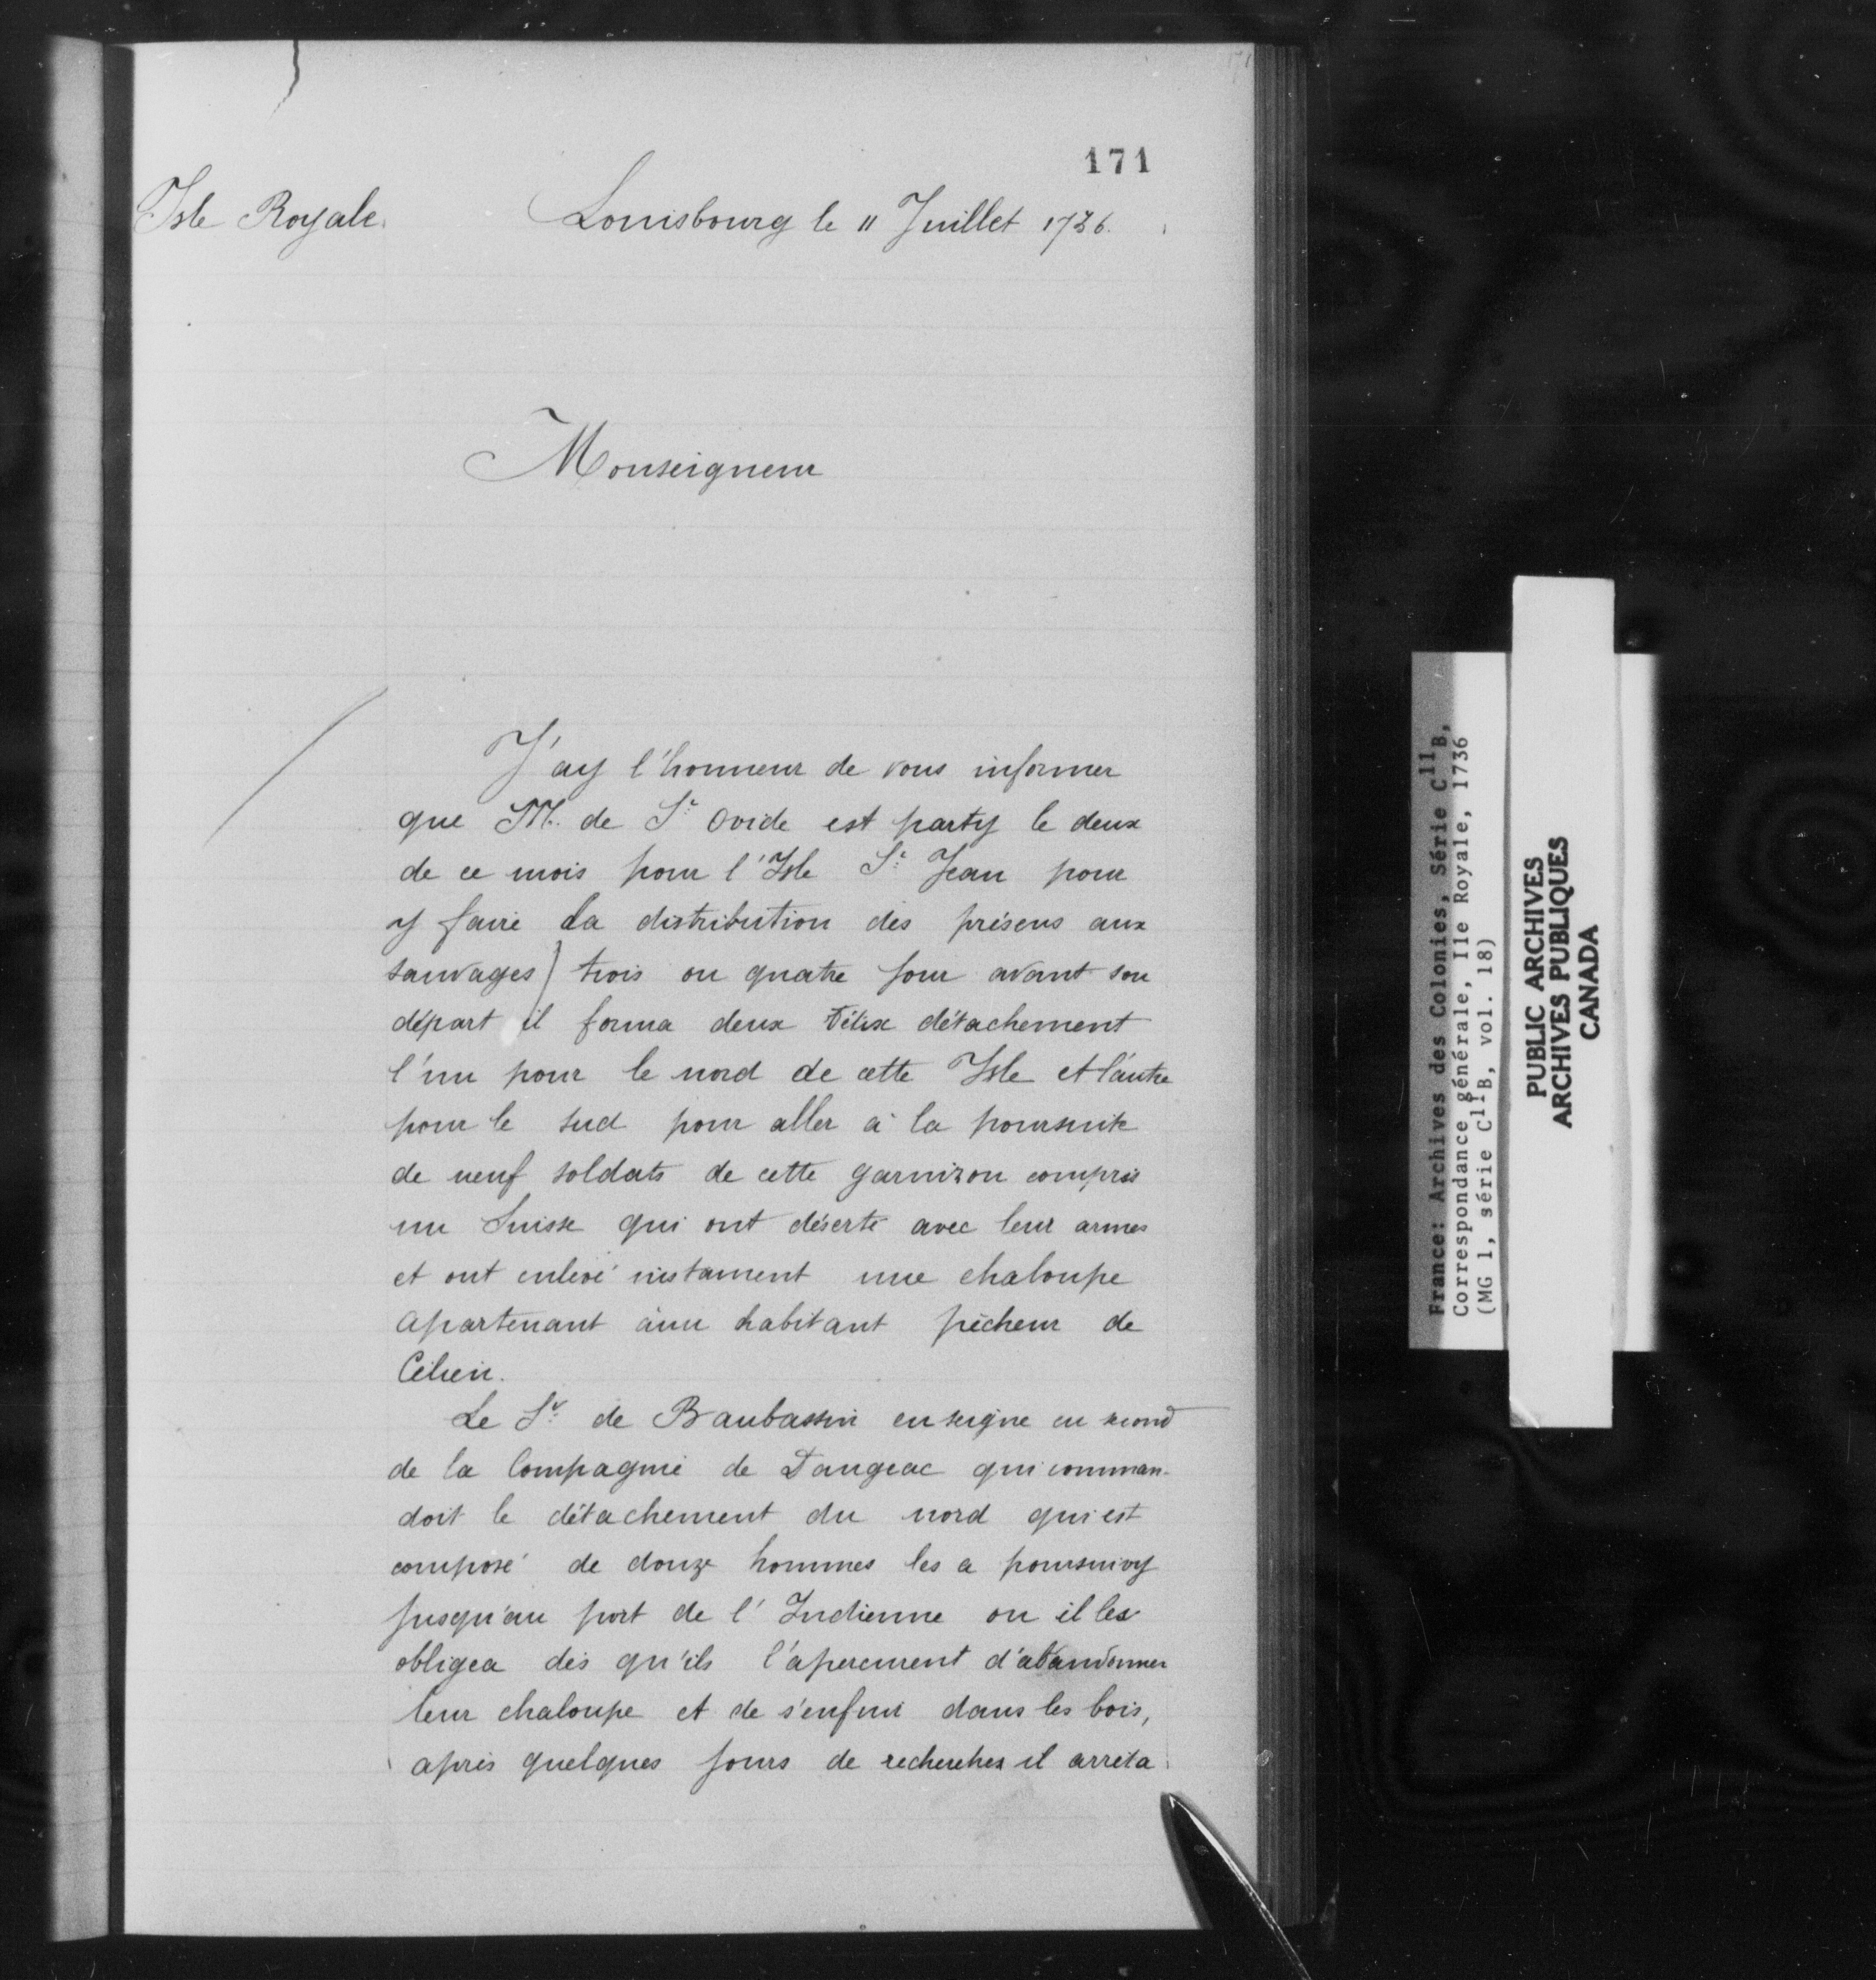 171
Isle Royale.
Louisbourg le 11 Juillet 1736.
Monseigneur
J'ay l'honneur de vous informer
que M. de St. Ovide est party le deux
de ce mois pour l'Isle St. Jean pour
y faire la distribution des présens aux
sauvages) trois ou quatre jour avant son
départ il forma deux détachement
l'un pour le nord de cette Isle et l'autre
pour le sud pour aller à la poursuite
de neuf soldats de cette garnizon compris
un Suisse qui ont déserté avec leur armes
et ont enlevé une chaloupe
apartenant à un habitant pêcheur de

Le Sr. de Baubassin enseigne en second
de la Compagnie de Dangeac qui comman-
doit le détachement du nord qui est
composé de douze hommes les a poursuivy
jusqu'au port de l'Indienne ou il les
obligea dès qu'ils l'aperçurent d'abandonner
leur chaloupe et de s'enfuir dans les bois,
après quelques jours de recherches il arreta
France: Archives des Colonies, Série C11B,
Correspondance générale, Ile Royale, 1736
(MG 1, série C11B, vol. 18)
PUBLIC ARCHIVES
ARCHIVES PUBLIQUES
CANADA